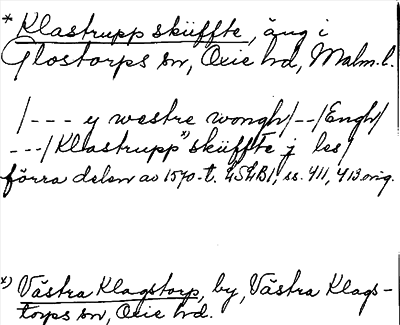 * Klastrupp skiffte, äng i
Glostorps sn, Oxie hd, Malm.l.
/--- y westre wongh/--/Engh/
---/Klastrupp x) skiffte j les/
förra delen av 1570-t. LSLB1, ss. 411, 413 orig.
x) Västra Klagstorp, by, Västra Klags-
torps sn, Oxie hd.